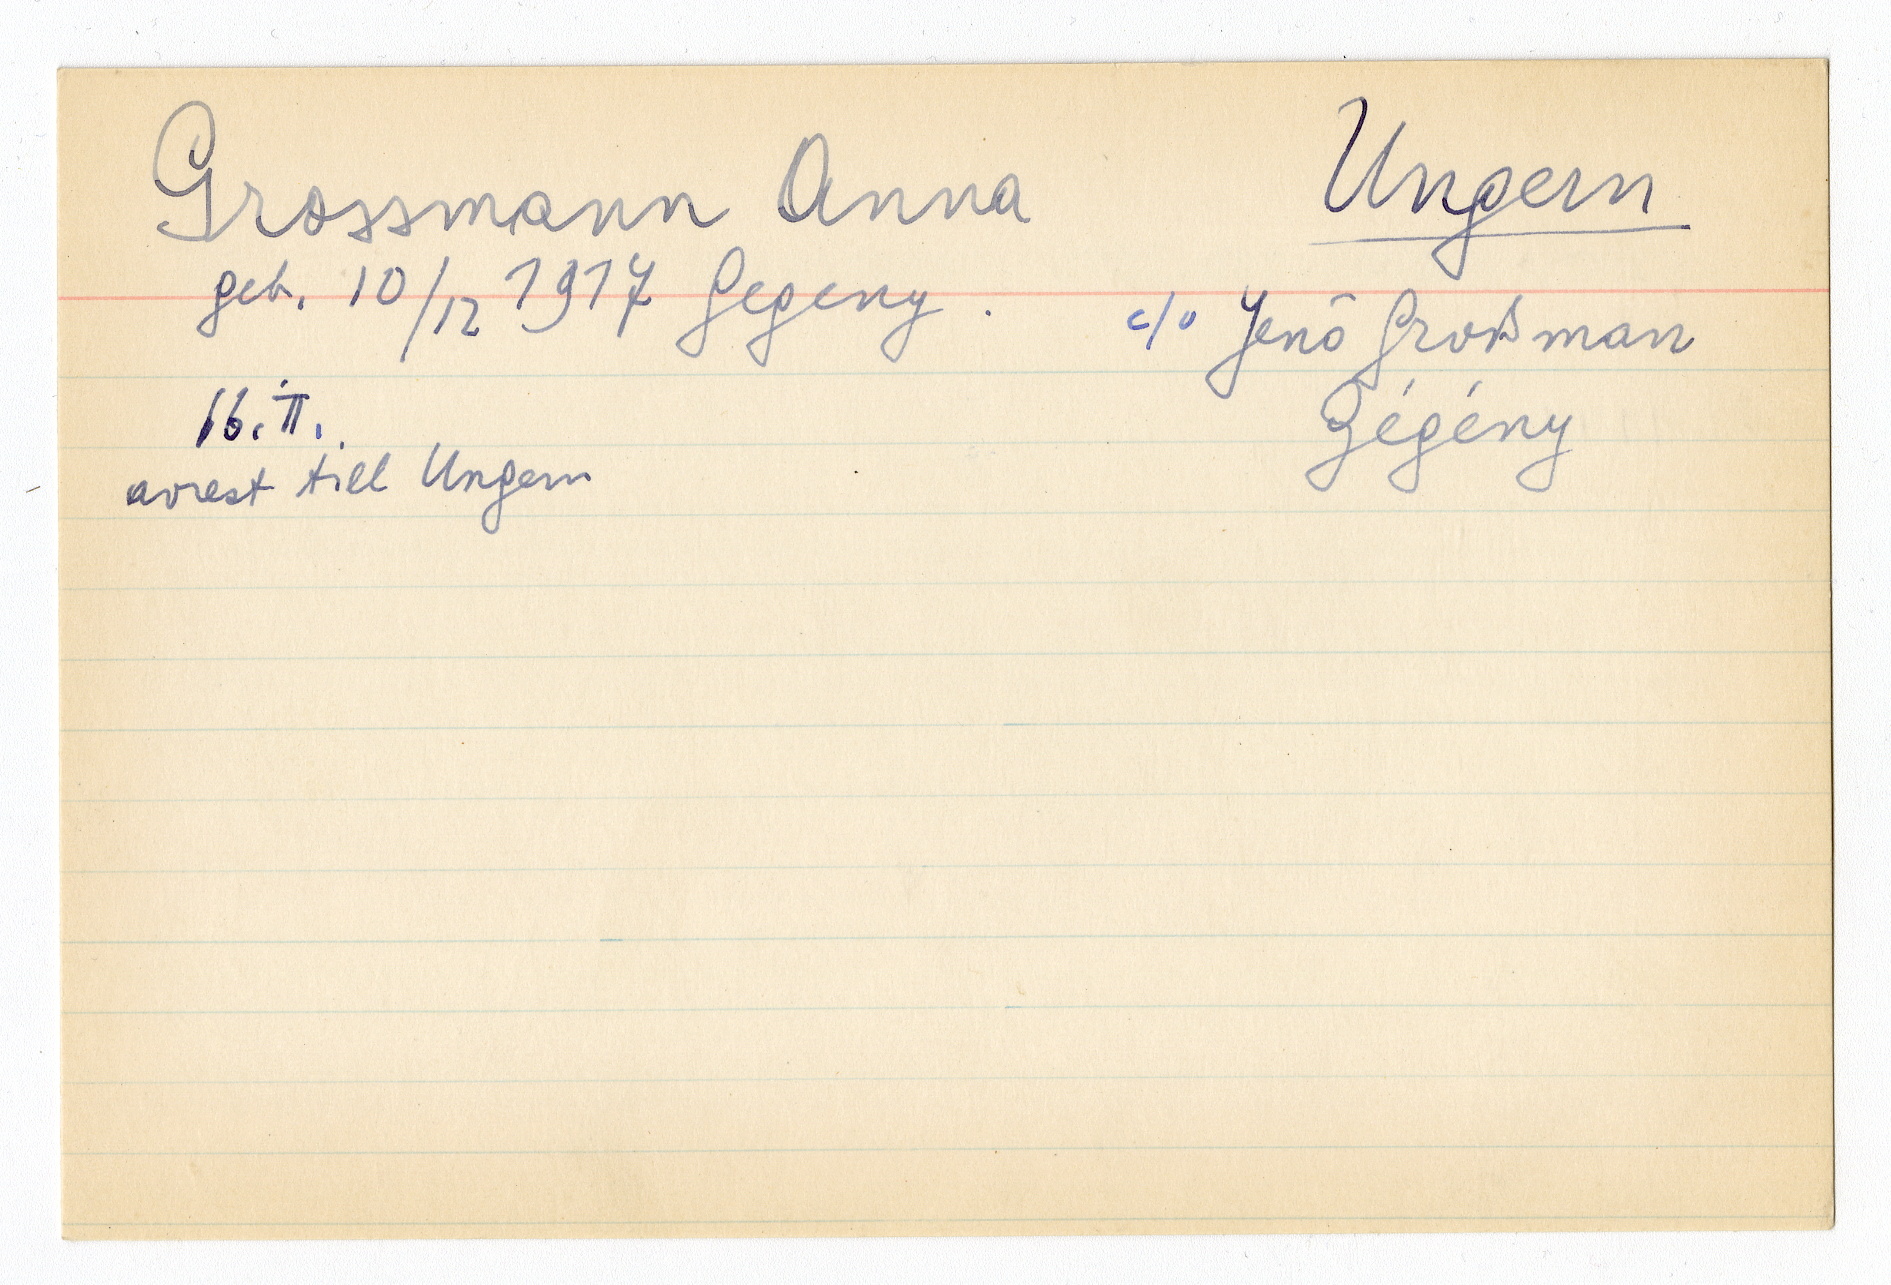 Grossmann Anna
Ungern
geb. 10/12 1917 Gegeny.
c/o Jenő Großman
Gégény
16.II.
avrest till Ungern